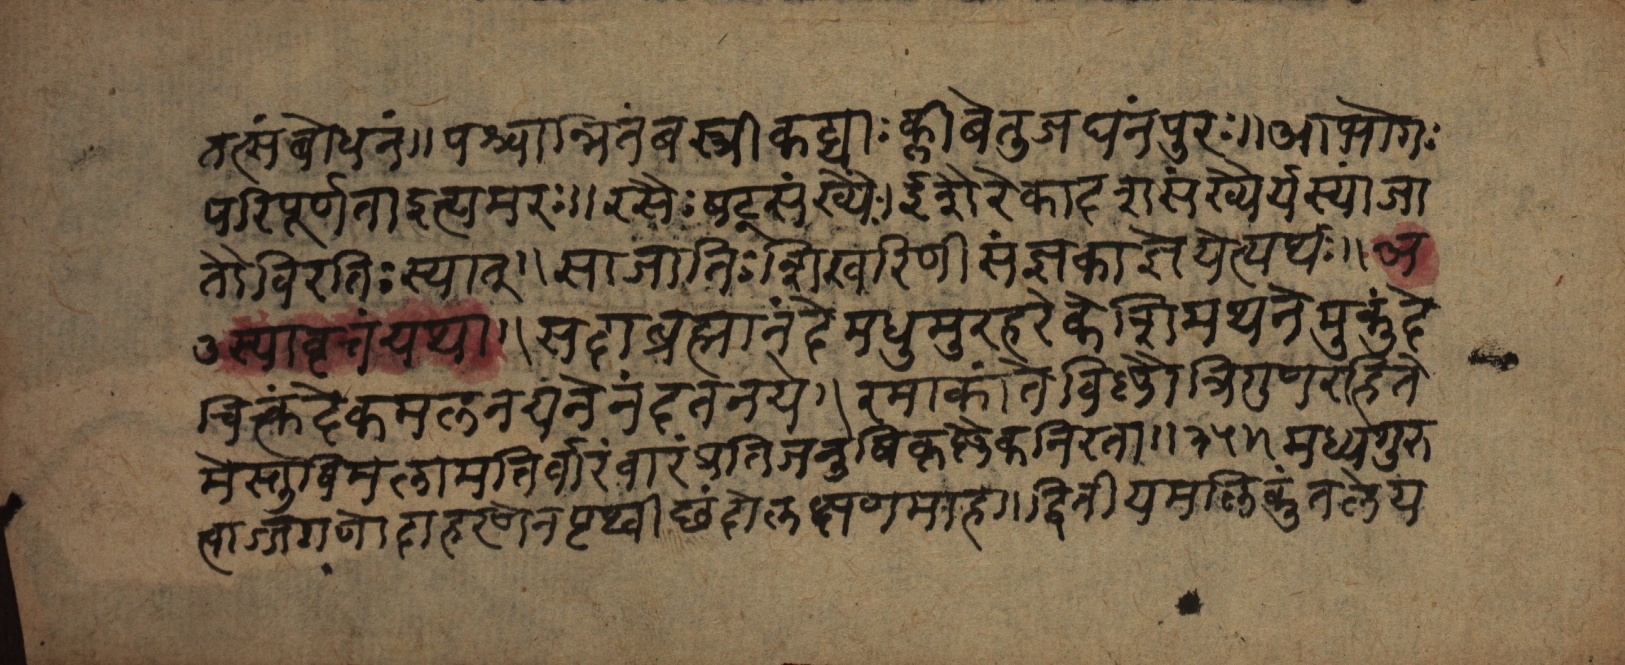 तत्संबोधनं॥ पश्चान्नितंब स्त्रीकट्याः क्लीबेतुजघनंपुरः॥ आभोगः
परिपूर्णता इत्यमरः॥ रसैः षट्संख्यैः। ईशैरेकादशसंख्यैर्यस्यां जा
तौ विरतिः स्यात्॥ सा जातिः शिखरिणी संज्ञका ज्ञेयेत्यर्थः॥ अ
स्यावृत्तं यथा॥ सदा ब्रह्मानंदे मधुमुरहरे केशिमथने मुकुंदे
चित्कंदे कमलनयने नंदतनये॥ रमाकांते विष्णौ त्रिगुणरहिते
मेस्तु विमला मतिर्वारंवारं प्रतिजनुषि कृष्णैकनिरता॥ मध्यगुरु
त्वाज्जगणोदाहरणेन पृथ्वीछंदोलक्षणमाह॥ द्वितीयमलिकुंतलेय